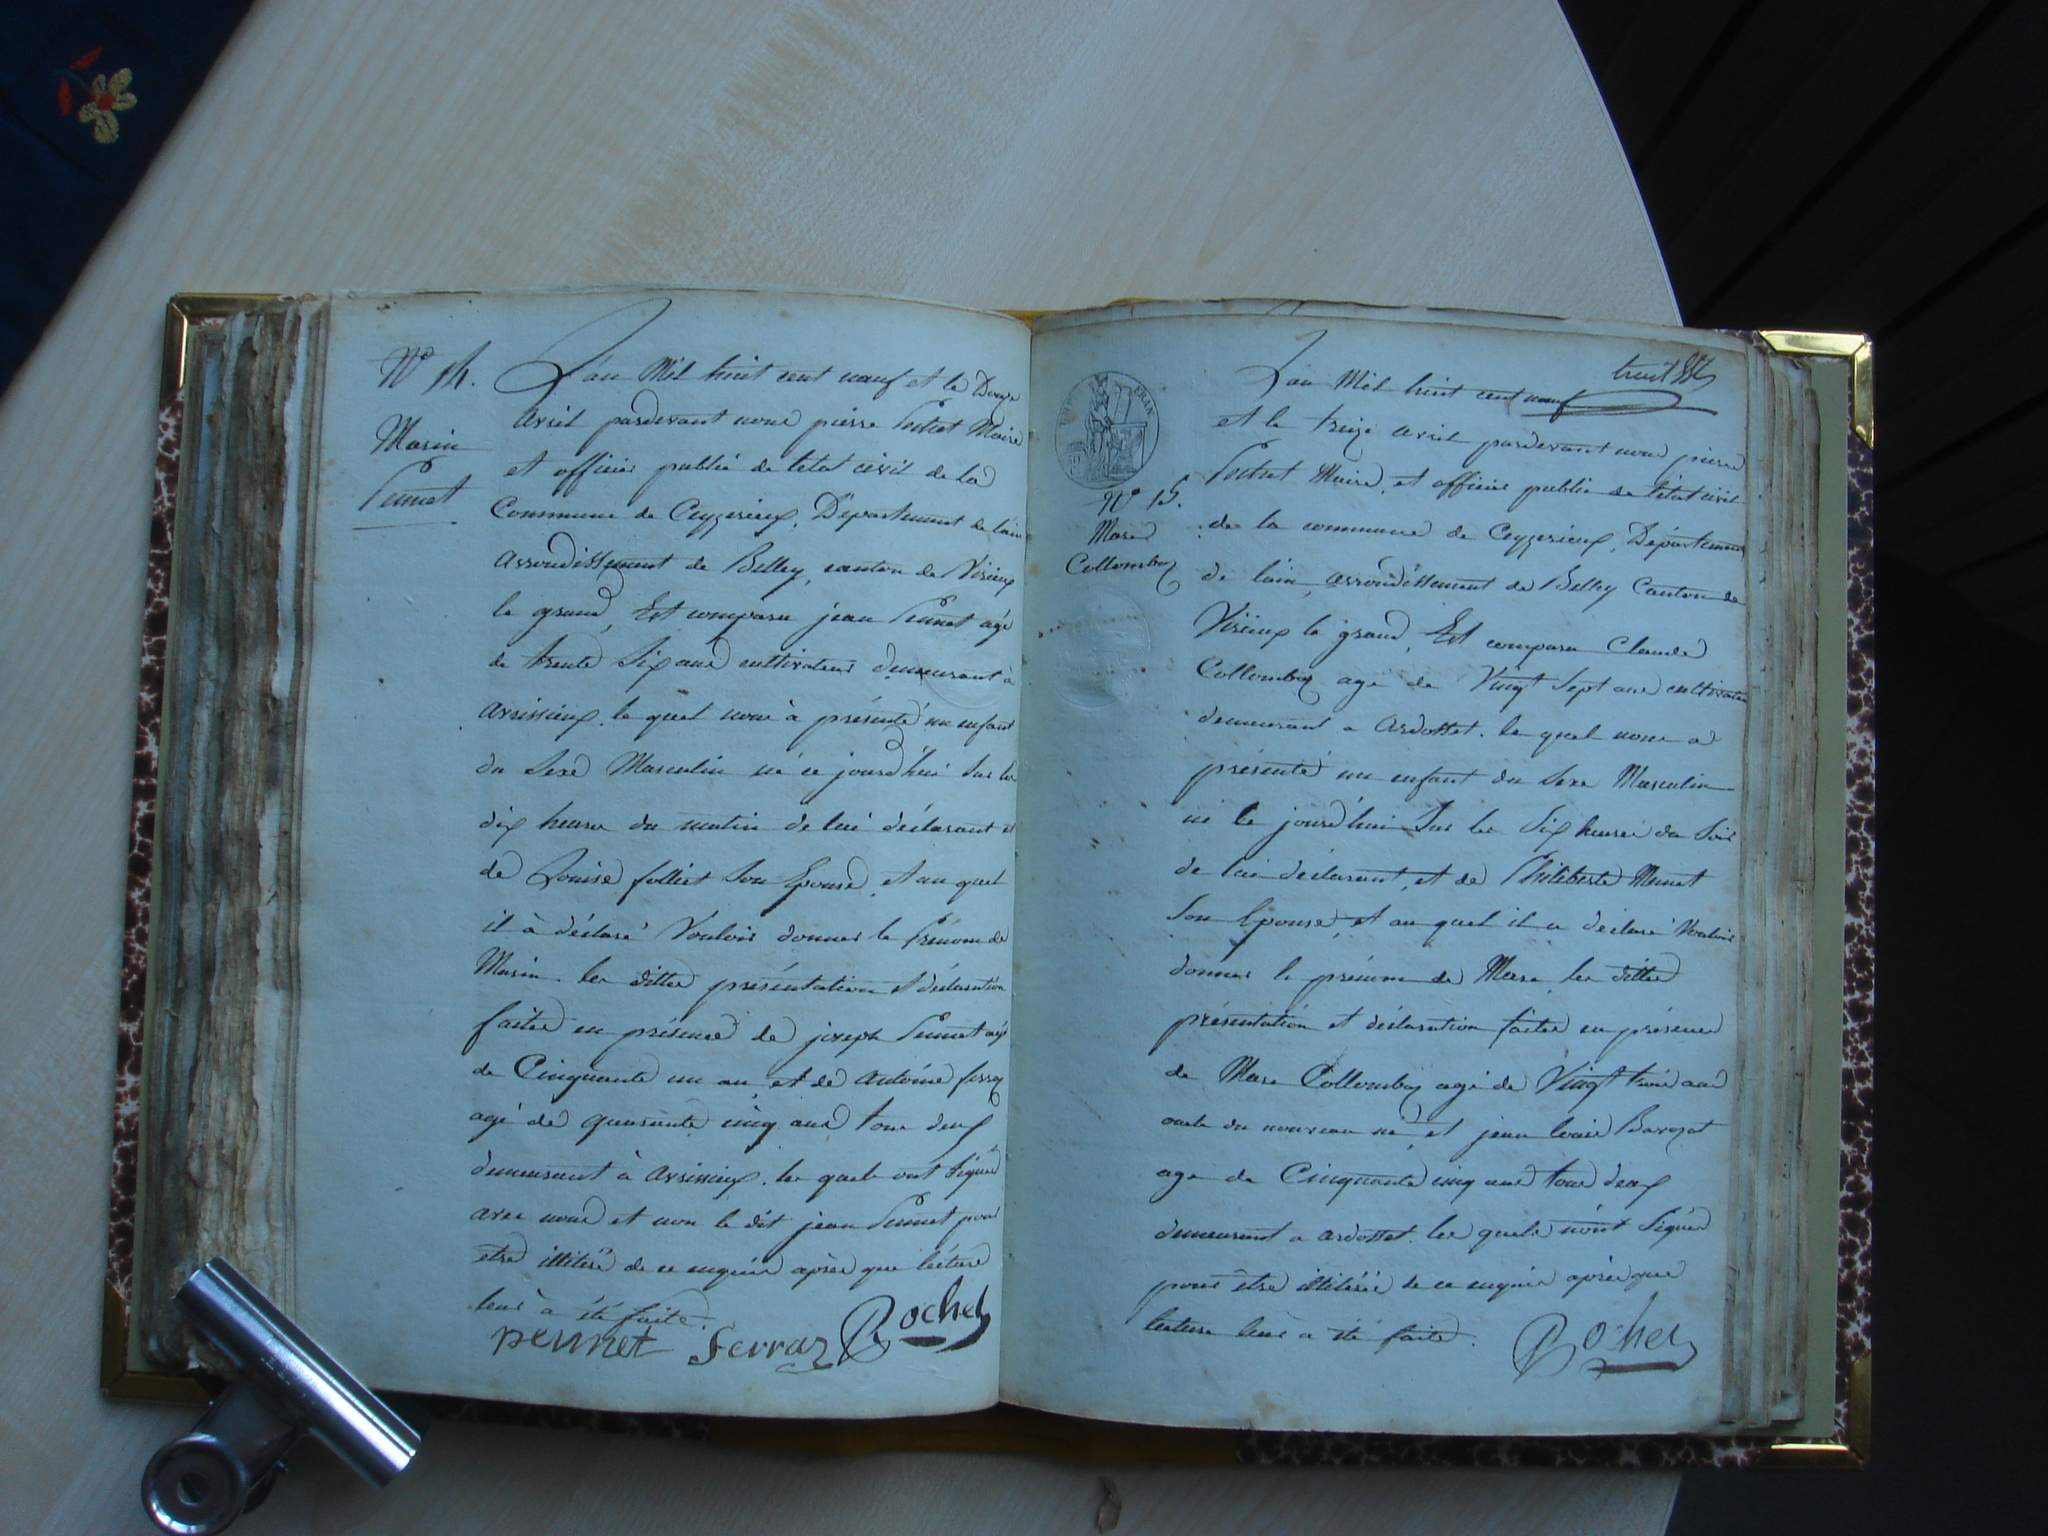 N° 14.
Marin
Pennet
L'an Mil huit cent neuf et le Douze
avril pardevant nous pierre Maire
et officier public de l'état civil de la
Commune de Ceyzerieux, Département de l'ain
arrondissement de Belley, canton de Virieux
le grand, Est comparu jean Pennet agé
de trente Six ans cultivateur demeurant à
avrissieux. le quel nous à présenté un enfant
du Sexe Masculin né ce jourd'hui Sur les
dix heures du matin de lui déclarant et
de Louise folliet Son Epouse, et au quel
il à déclaré Vouloir donner le Prénom de
Marin. les dittes présentation et déclaration
faites en présence de joseph Pennet agé
de Cinquante un an, et de antoine ferraz
agé de quarante cinq ans tous deux
demeurant à avrissieux. les quels ont Signé
avec nous et non le dit jean Pennet pour
etre illitéré de ce enquis après que lécture
leur à été faite.
pennet ferraz Rochet
truit
L'an Mil huit cent neuf
et le treize avril pardevant nous pierre
Maire, et officier public de l'état civil
N° 15.
Marc
Collomboz
de la commune de Ceyzerieux, Département
de l'ain, arrondissement de Belley Canton de
Virieux le grand, Est comparu Claude
Collomboz age de Vingt Sept ans cultivateur
demeurant a ardosset. le quel nous a
présenté un enfant du Sexe Masculin
né le jourd'hui Sur les Six heures du Soir
de lui déclarant, et de Philiberte Monet
Son Epouse, et au quel il a déclaré Vouloir
donner le prénom de Marc, les dittes
présentation et déclaration faites en présence
de Marc Collomboz agé de Vingt trois ans
oncle du nouveau né, et jean louis Barozat
age de Cinquante cinq ans tous deux
demeurant a ardosset. les quels n'ont Signé
pour être illitéré de ce enquis après que
lecture leur a été faite.
Rochet